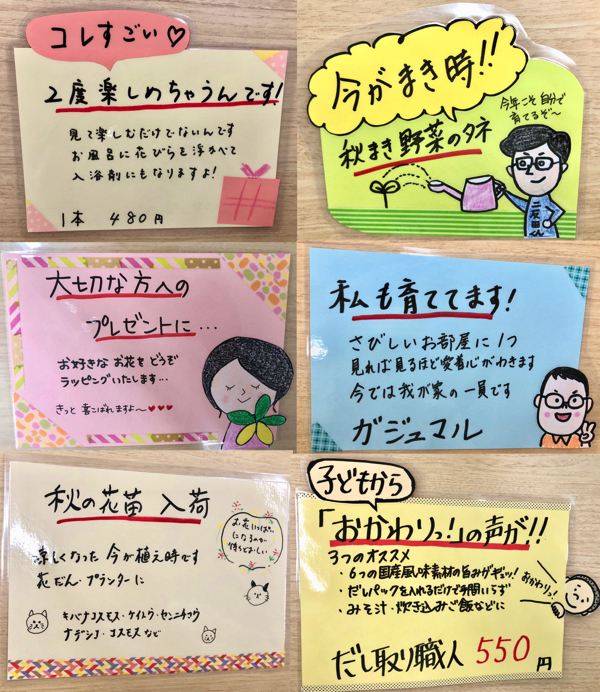 コレすごい♡
2度楽しめちゃうんです!
見て楽しむだけでないんです
お風呂に花びらを浮かべて
入浴剤にもなりますよ!
1本 480円
今がまき時!!
秋まき野菜のタネ
今年こそ自分で
育てるぞ〜
二反田くん
大切な方への
プレゼントに…
お好きなお花をどうぞ
ラッピングいたします…
きっと喜こばれますよ〜♥♥♥
私も育ててます!
さびしいお部屋に1つ
見れば見るほど愛着心がわきます
今では我が家の一員です
ガジュマル
秋の花苗 入荷
お花いっぱい
になるのが
待ちどおしい
涼しくなった今が植え時です
花だん・プランターに
キバナコスモス・ケイトウ・センニチコウ
ナデシコ・コスモスなど
子どもから
「おかわりっ!」の声が!!
3つのオススメ
・6つの国産風味素材の旨みがギュッ!
・だしパックを入れるだけで手間いらず
・みそ汁・炊き込みご飯などに
おかわりっ!
だし取り職人 550円